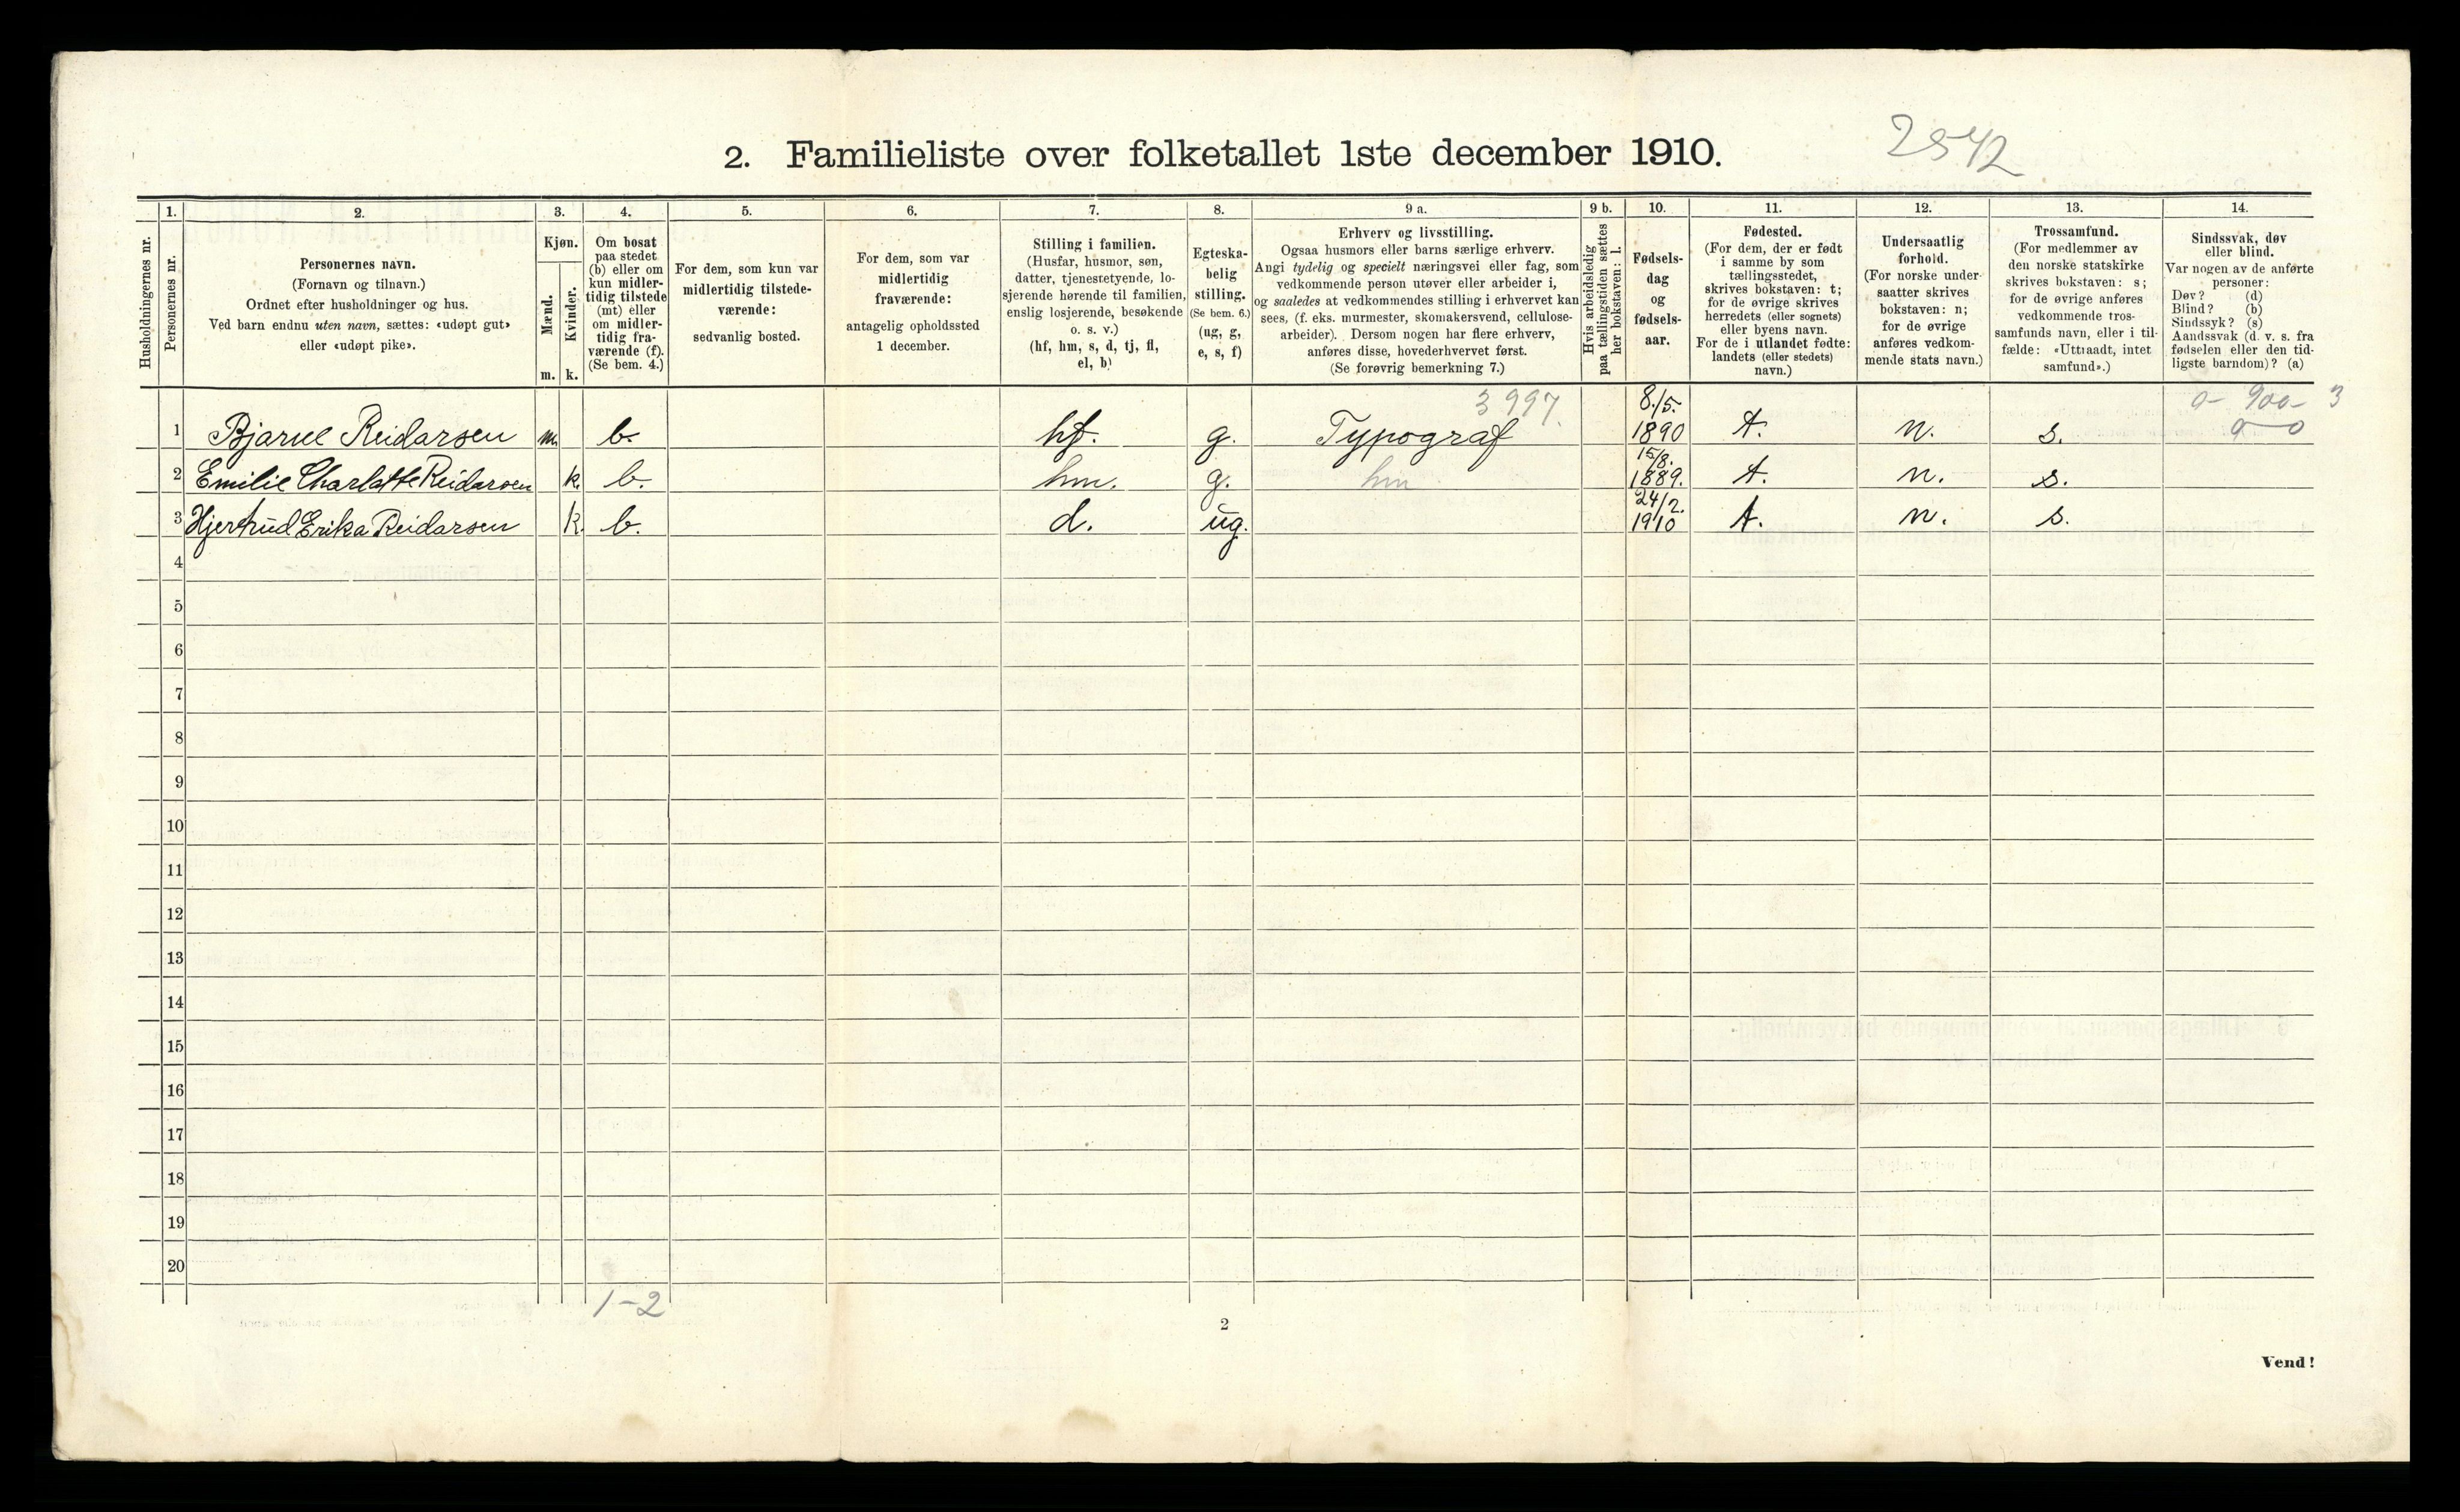 2542
2. Familieliste over folketallet 1ste december 1910.
1. 2. 3. 4. 5. 6. 7. 8. 9 a. 9 b. 10. 11. 12. 13. 14.
Husholdningernes nr.
Personernes nr.
Personernes navn.
(Fornavn og tilnavn.)
Ordnet efter husholdninger og hus.
Ved barn endnu uten navn, sættes: «udøpt gut»
eller «udøpt pike».
Kjøn.
Mænd.
Kvinder.
m. k.
Om bosat
paa stedet
(b) eller om
kun midler-
tidig tilstede
(mt) eller
om midler-
tidig fra-
værende (f).
(Se bem. 4.)
For dem, som kun var
midlertidig tilstede-
værende:
sedvanlig bosted.
For dem, som var
midlertidig
fraværende:
antagelig opholdssted
1 december.
Stilling i familien.
(Husfar, husmor, søn,
datter, tjenestetyende, lo-
sjerende hørende til familien,
enslig losjerende, besøkende
o. s. v.)
(hf, hm, s, d, tj, fl,
el, b)
Egteska-
belig
stilling.
(Se bem. 6.)
(ug, g,
e, s, f)
Erhverv og livsstilling.
Ogsaa husmors eller barns særlige erhverv.
Angi tydelig og specielt næringsvei eller fag, som
vedkommende person utøver eller arbeider i,
og saaledes at vedkommendes stilling i erhvervet kan
sees, (f. eks. murmester, skomakersvend, cellulose-
arbeider). Dersom nogen har flere erhverv,
anføres disse, hovederhvervet først.
(Se forøvrig bemerkning 7.)
Hvis arbeidsledig
paa tællingstiden sættes
her bokstaven: l.
Fødsels-
dag
og
fødsels-
aar.
Fødested.
(For dem, der er født
i samme by som
tællingsstedet,
skrives bokstaven: t;
for de øvrige skrives
herredets (eller sognets)
eller byens navn.
For de i utlandet fødte:
landets (eller stedets)
navn.)
Undersaatlig
forhold.
(For norske under-
saatter skrives
bokstaven: n;
for de øvrige
anføres vedkom-
mende stats navn.)
Trossamfund.
(For medlemmer av
den norske statskirke
skrives bokstaven: s;
for de øvrige anføres
vedkommende tros-
samfunds navn, eller i til-
fælde: «Uttraadt, intet
samfund».)
Sindssvak, døv
eller blind.
Var nogen av de anførte
personer:
Døv? (d)
Blind? (b)
Sindssyk? (s)
Aandssvak (d. v. s. fra
fødselen eller den tid-
ligste barndom)? (a)
3997. 8./5. 0- 900- 3
1 Bjarne Reidarsen m. b. hf. g. Typograf 1890 t. n. s.
15/8.
2 Emilie Charlotte Reidarsen k. b. hm. g. hm 1889. t. n. s.
24/2.
3 Hjertrud Erika Reidarsen k. b. d. ug. 1910 t. n. s.
4
5
6
7
8
9
10
11
12
13
14
15
16
17
18
19
20
1-2
2
Vend!